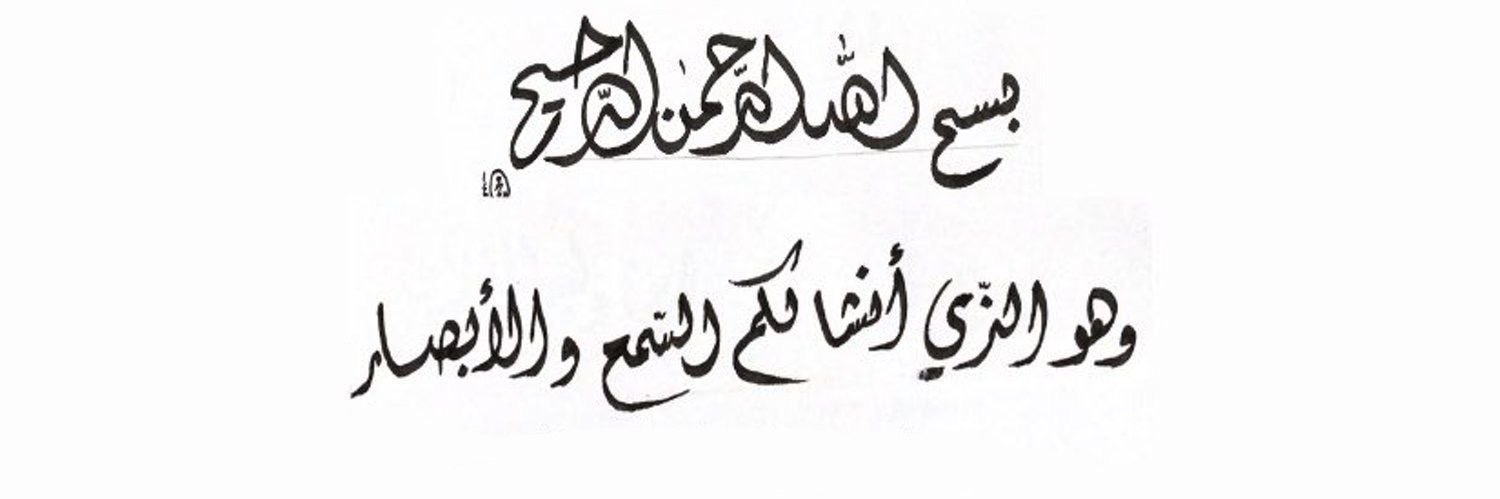 بسم الله الرحمن الرحيم
وهو الذّي أنشا لكم السّمع والأبصار